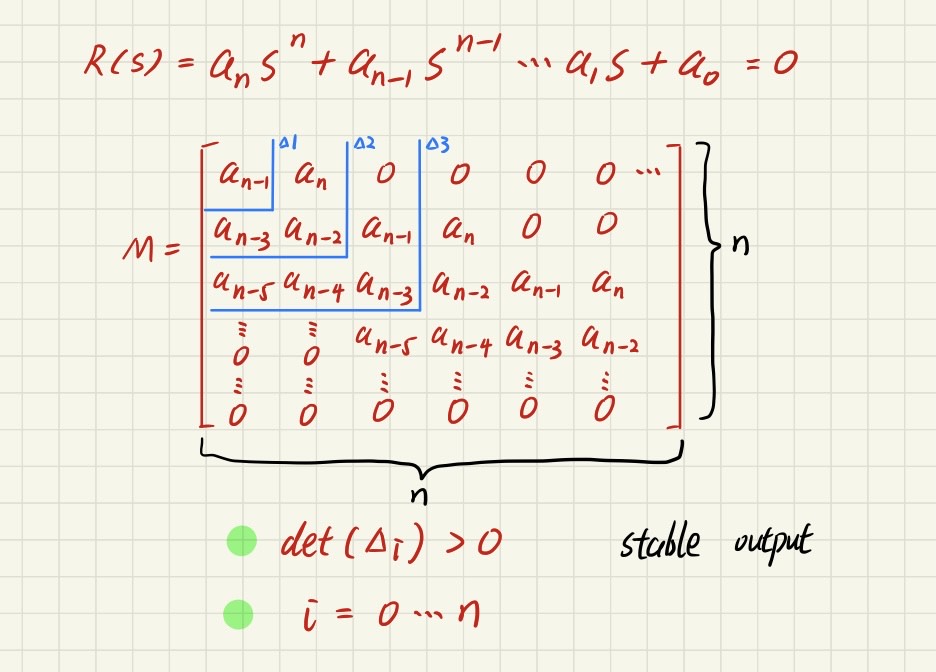 R(s) = aₙsⁿ + aₙ₋₁sⁿ⁻¹ ... a₁s + a₀ = 0
Δ1 Δ2 Δ3
aₙ₋₁ aₙ 0 0 0 0 ...
M = aₙ₋₃ aₙ₋₂ aₙ₋₁ aₙ 0 0 n
aₙ₋₅ aₙ₋₄ aₙ₋₃ aₙ₋₂ aₙ₋₁ aₙ
⋮ ⋮ aₙ₋₅ aₙ₋₄ aₙ₋₃ aₙ₋₂
0 0
⋮ ⋮ ⋮ ⋮ ⋮ ⋮
0 0 0 0 0 0
n
det(Δᵢ) > 0 stable output
i = 0 ... n